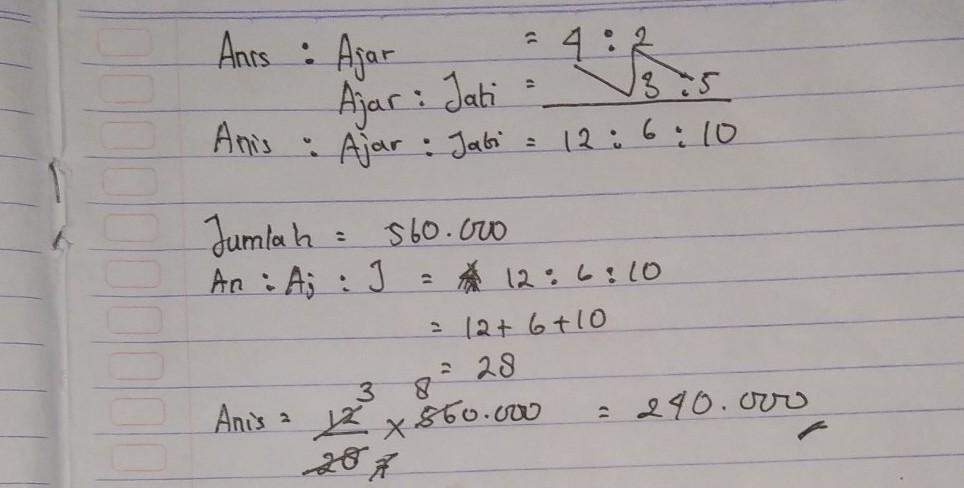 Anis : Ajar = 4 : 2
Ajar : Jati = 3 : 5
Anis : Ajar : Jati = 12 : 6 : 10
Jumlah = 560.000
An : Aj : J = 12 : 6 : 10
= 12 + 6 + 10
= 28
3 8
Anis = 12/28 × 560.000 = 240.000
7